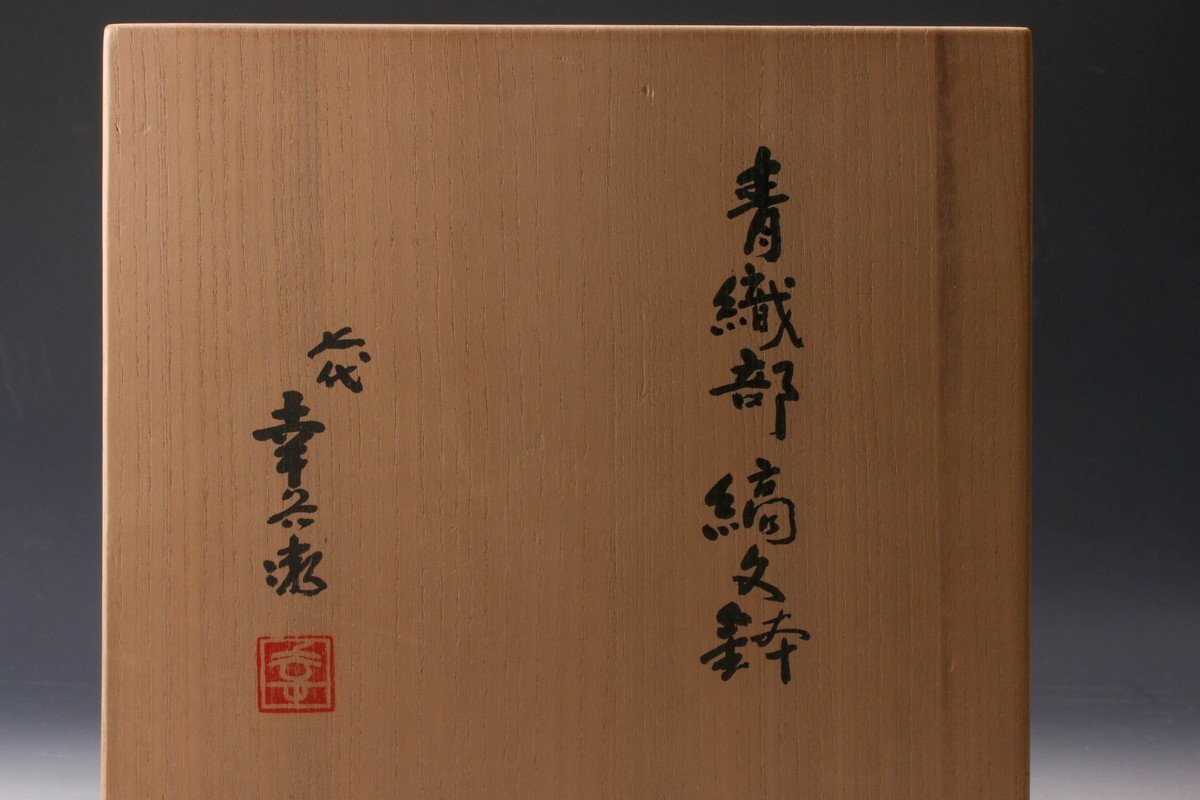 青織部 縞文鉢
七代
幸兵衛
幸